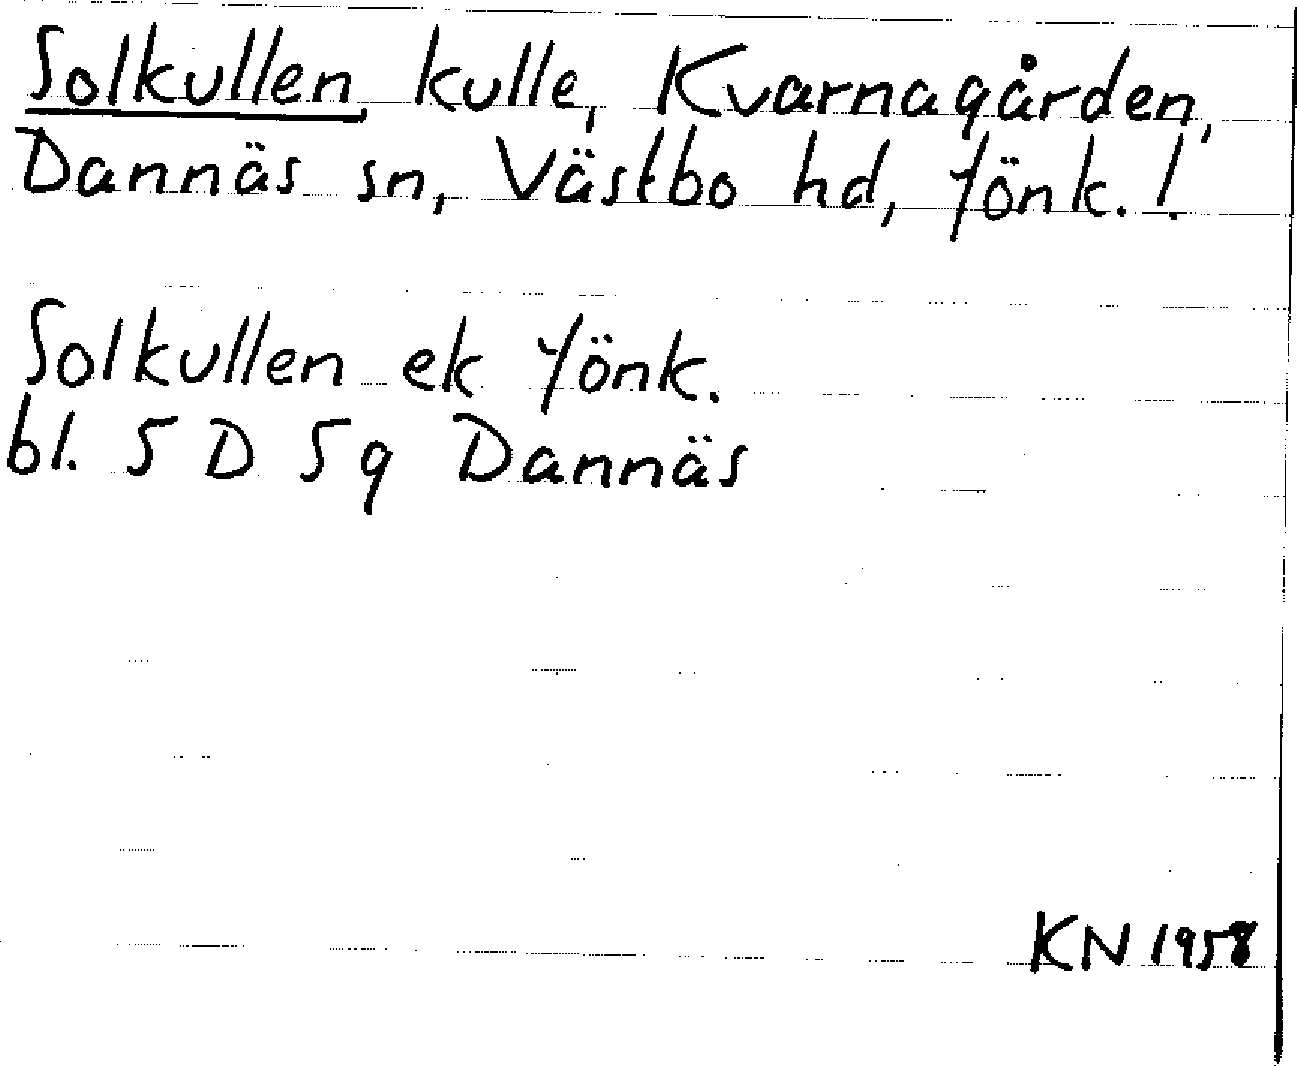 Solkullen, kulle, Kvarnagården,
Dannäs sn, Västbo hd, Jönk. !
Solkullen ek Jönk.
bl. 5 D 5 g Dannäs
KN 1958